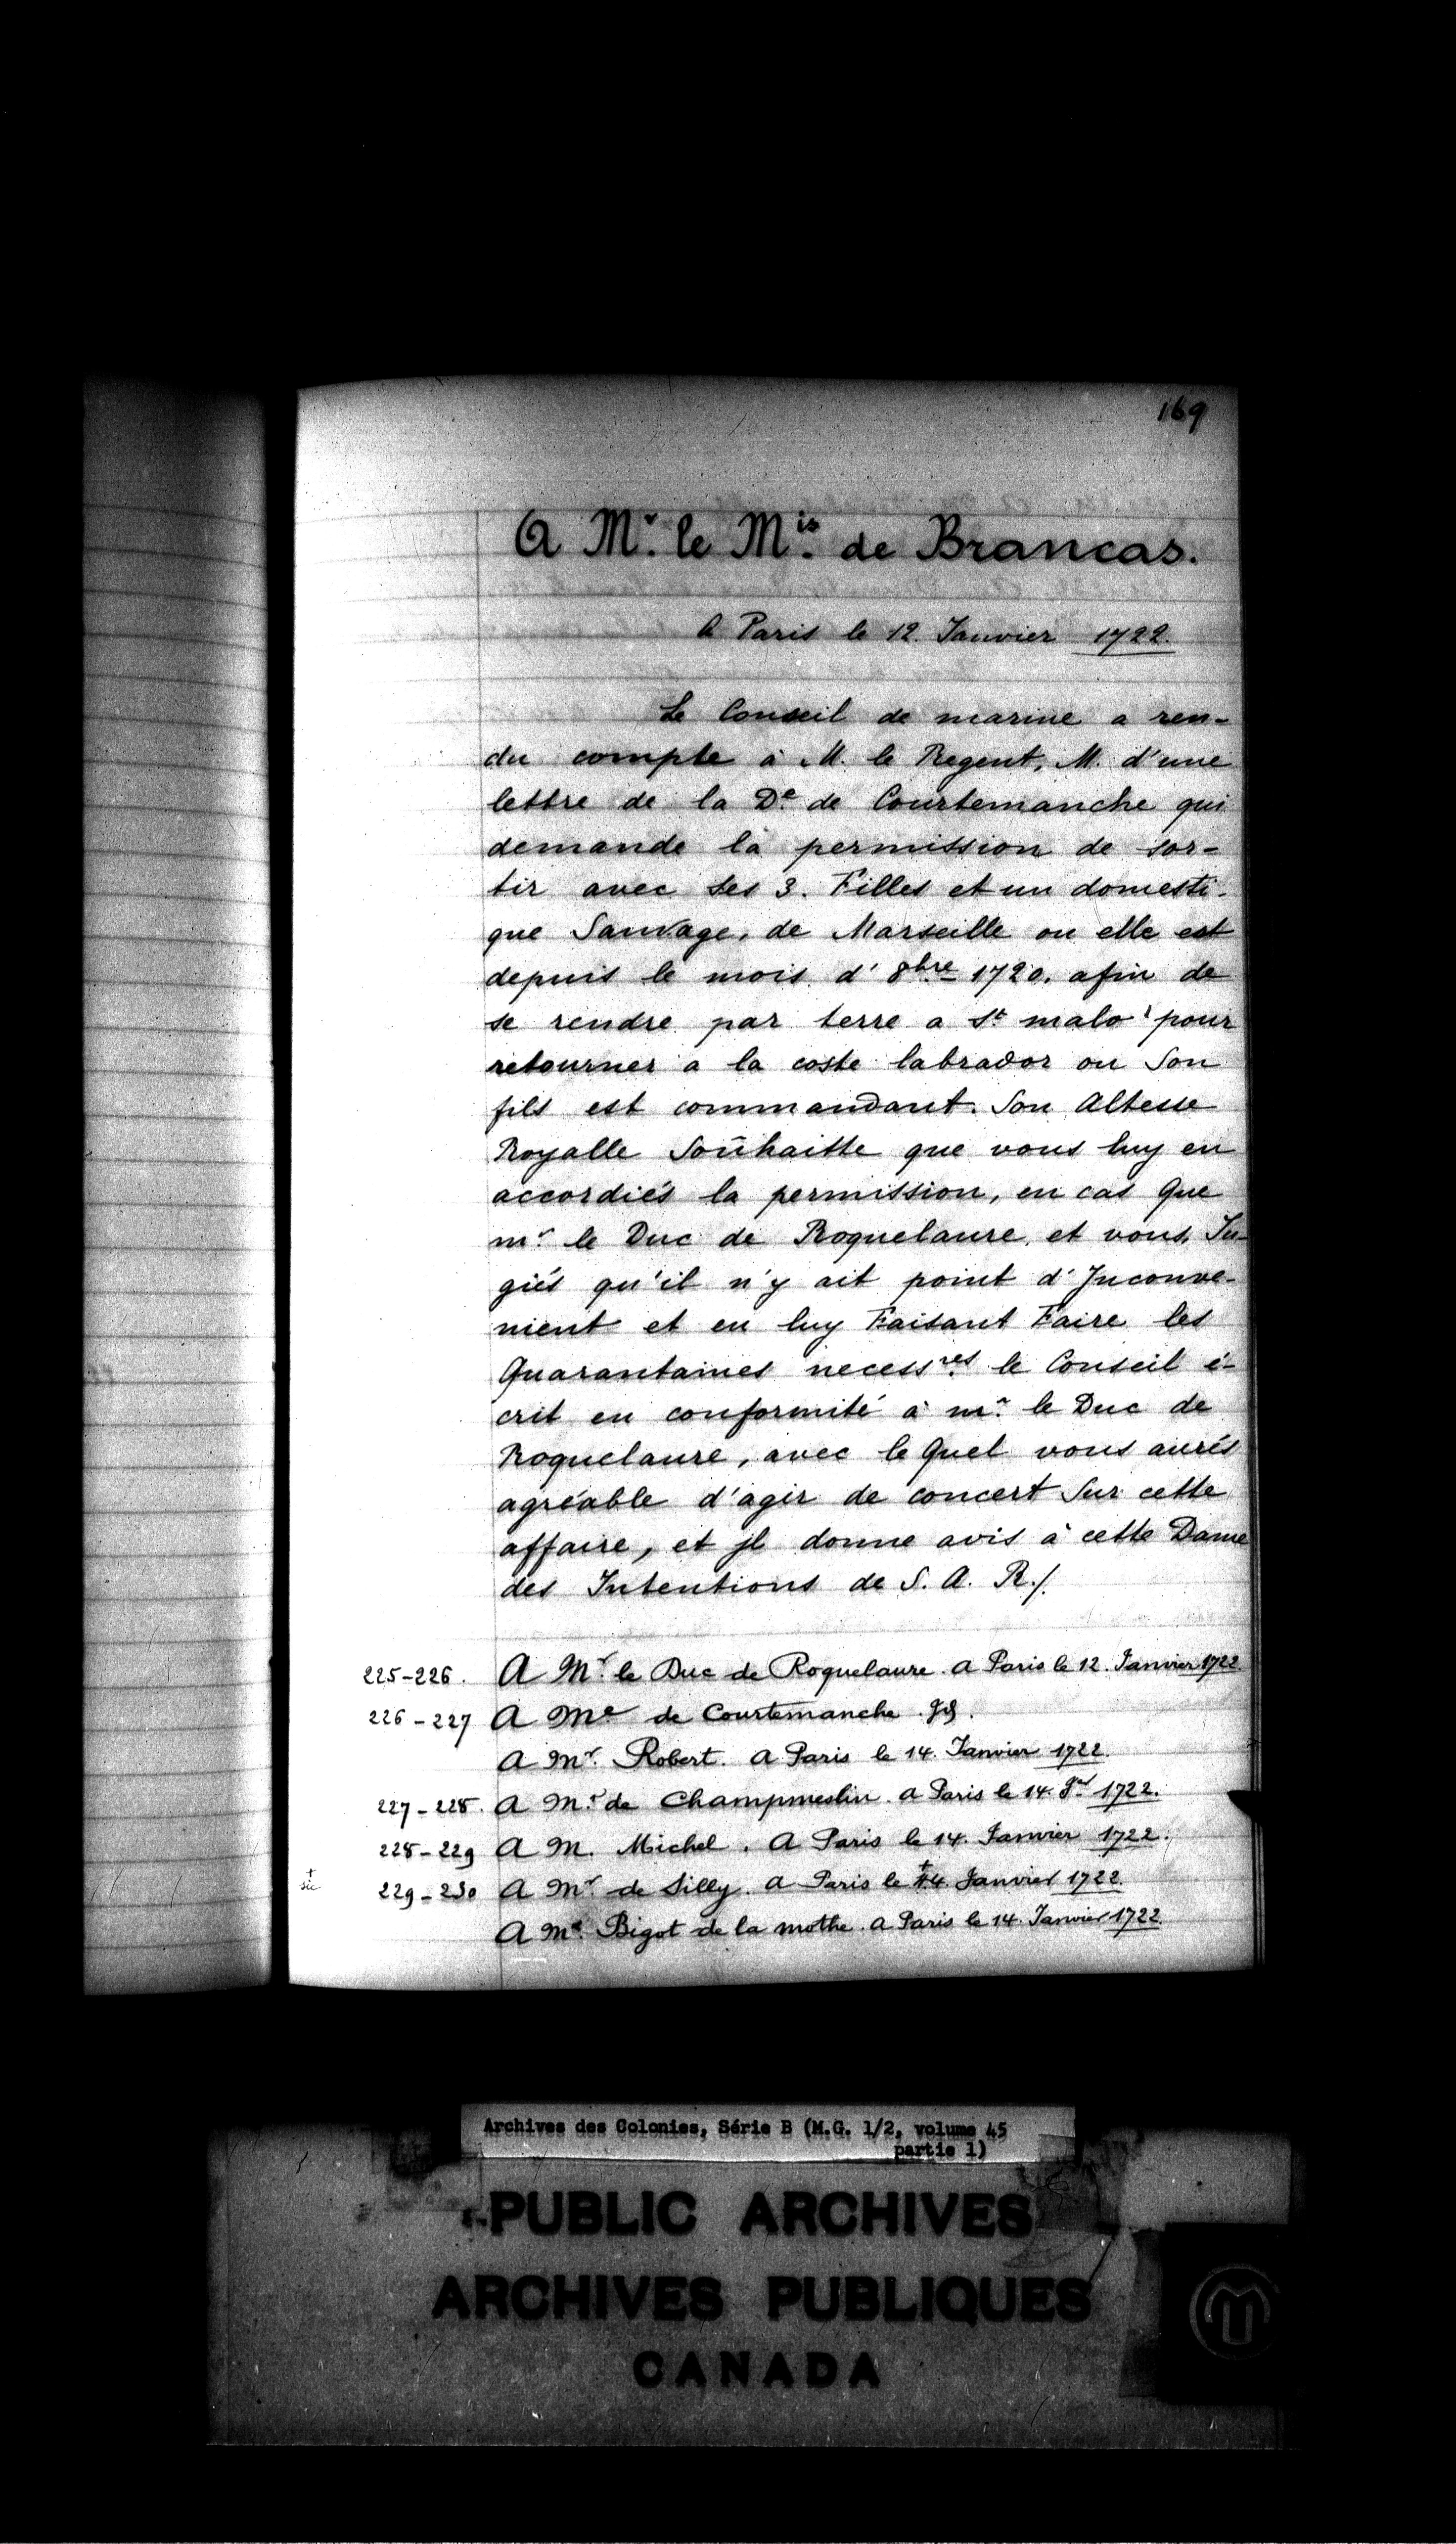 169
A Mr. le Mis. de Brancas.
A Paris le 12. Janvier 1722.
Le Conseil de marine a ren-
du compte à M. le Regent, M. d'une
lettre de la De. de Courtemanche qui
demande la permission de sor-
tir avec ses 3. Filles et un domesti-
que Sauvage, de Marseille ou elle est
depuis le mois d'8bre 1720. afin de
se rendre par terre a St malo pour
retourner a la coste labrador ou Son
fils est commandant. Son Altesse
Royalle Souhaitte que vous luy en
accordiés la permission, en cas Que
mr. le Duc de Roquelaure et vous Ju-
giés qu'il n'y ait point d'Inconve-
nient et en luy Faisant Faire les
Quarantaines necessres. le Conseil é-
crit en conformité à mr. le Duc de
Roquelaure, avec le Quel vous aurés
agréable d'agir de concert Sur cette
affaire, et jl donne avis à cette Dame
des Intentions de S. A. R./.
225-226. A Mr. le Duc de Roquelaure. a Paris le 12. Janvier 1722
226-227 A Me de Courtemanche.
A Mr. Robert. a Paris le 14. Janvier 1722.
227-228. A Mr. de Champmeslin. a Paris le 14. Jer 1722.
228-229 A M. Michel. A Paris le 14. Janvier 1722.
+ sic 229-230 A Mr. de Silly. a Paris le 14 Janvier 1722.
A Mr. Bigot de la mothe. a Paris le 14. Janvier 1722.
Archives des Colonies, Série B (M.G. 1/2, volume 45
partie 1)
PUBLIC ARCHIVES
ARCHIVES PUBLIQUES
CANADA